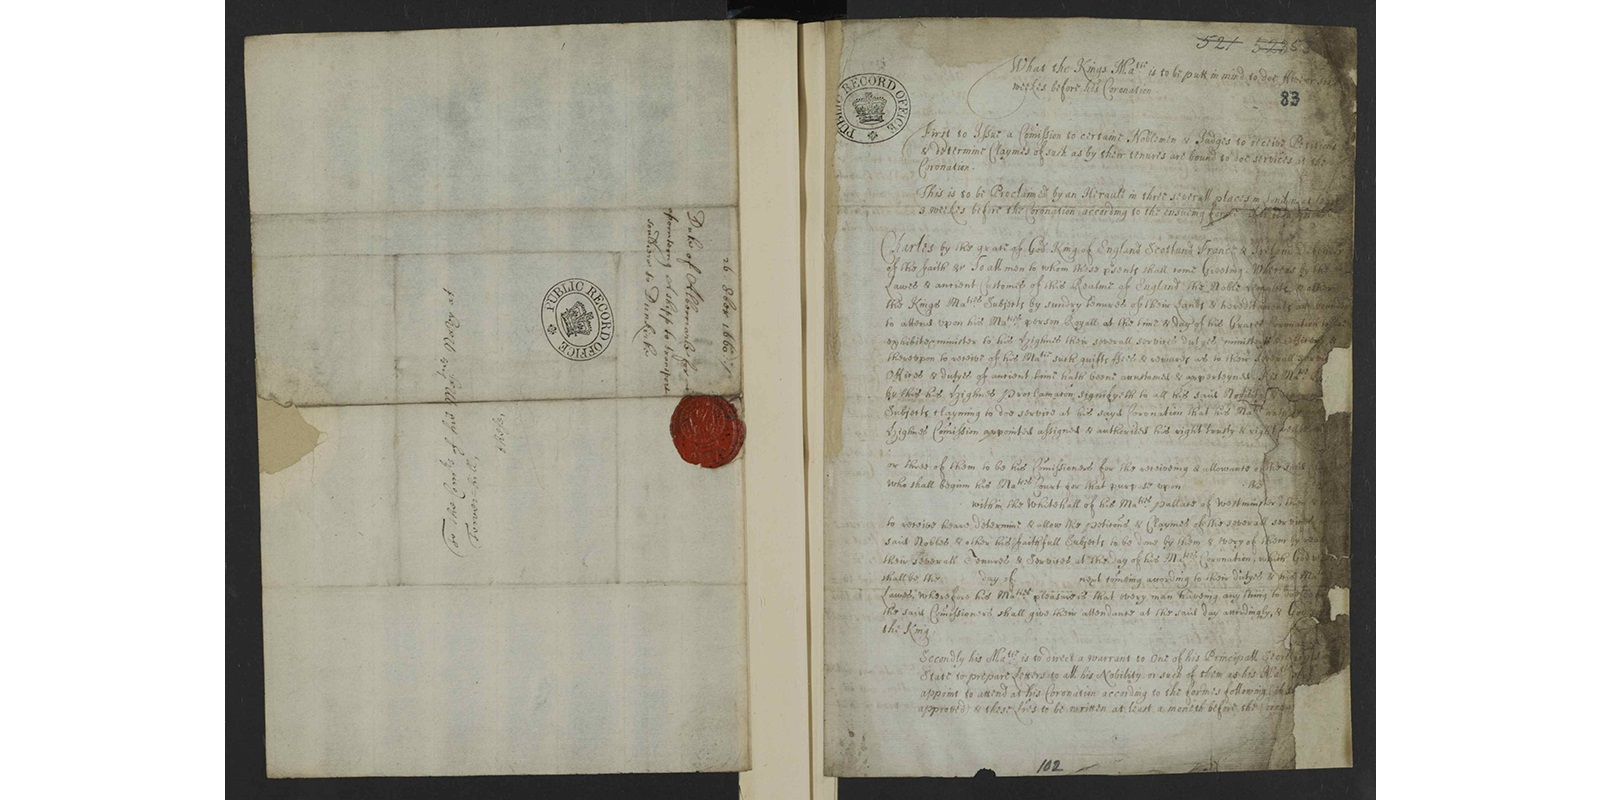 26 8ber 1660
Duke of Albemarle for
a shipp to transport
to Dunkirk
To the Comrs of his Matys Navy at
Tower hill,
these,
PUBLIC RECORD OFFICE
PUBLIC RECORD OFFICE
521
83
What the Kings Matie is to be putt in mind to doe
weekes before his Coronation
First to Issue a Comission to certaine Noblemen & Judges to receive Petitions
& determine Claymes of such as by their tenures are bound to doe services at the
Coronation.
This is to be Proclaimed by an Herault in three severall places in
weekes before the Coronation according to the ensueing forme
Charles by the grace of God King of England Scotland France &
of the faith &c To all men to whom these psents shall come Greeting. Whereas by the
Lawes & ancient Customes of this Realme of England the Noble & other
the Kings Maties Subjects by sundry tenures of their Lands & hereditamts are bounde
to attend upon his Maties person Royall at the time & day of his Graces Coronation to
minister to his Highnes their severall service dutyes
thereupon to receive of his Matie such guifts fees & rewards as to their severall
Offices & dutyes of ancient time hath beene accustomed & apperteyned. his Matie
by this his Highnes Proclamacon signifyeth to all his said Nobles &
Subjects clayming to doe service at his sayd Coronation that his Matie
Highnes Comission appointed assigned & authorized his right trusty & right
or three of them to be his Comissioners for the receiveing & allowance of the said
who shall beginn his Maties Court for that purpose upon the
within the Whitehall of his Maties pallace of Westminster, then &
to receive heare, determine & allow the peticons & Claymes of the severall services
said Nobles & other his faithfull Subjects to be done by them & every of them by
their severall Tenures & Services at the day of his Maties Coronation, which God
shall be the day of next comeing according to their dutyes & his Maties
Lawes wherefore his Maties pleasure is that every man haveing any thing to doe
the said Comissioners shall give their attendance at the said day accordingly, & God
the King
Secondly his Matie is to direct a warrant to One of his Principall Secretaryes
State to prepare Letters to all his Nobility, or such of them as his Matie
appoint to attend at his Coronation according to the formes following, if
approved) & these Lres to be written at least a moneth before the
102